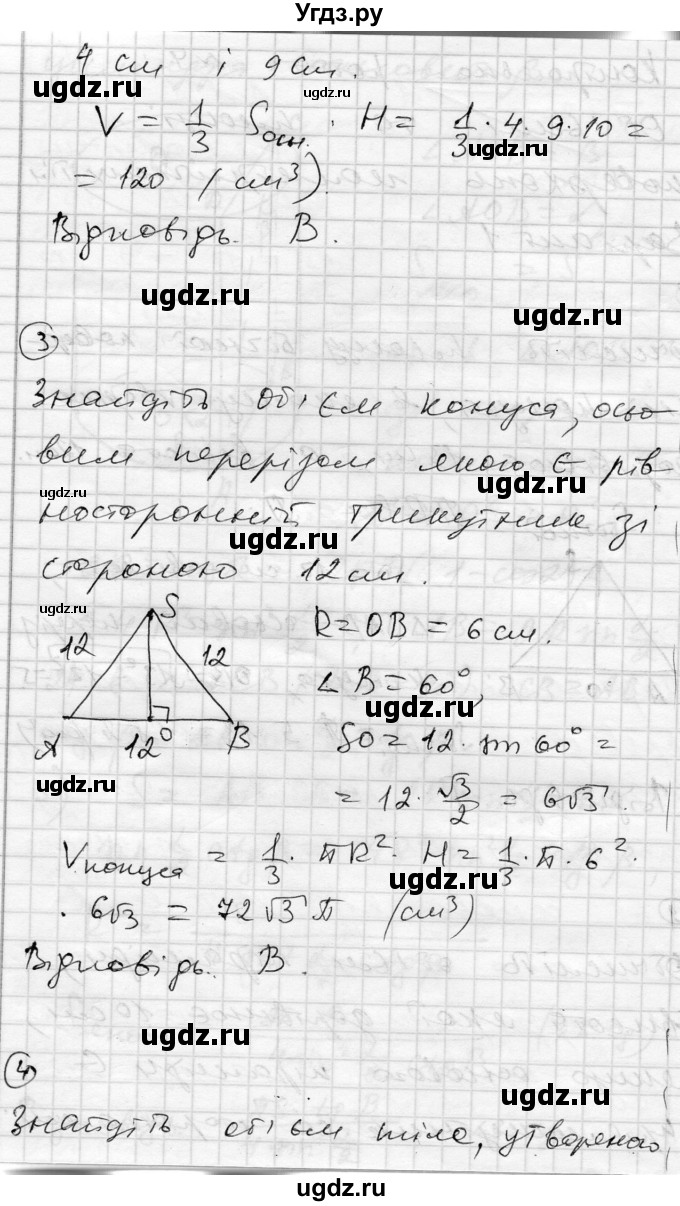 Угдз.ру
4 см і 9 см.
ugdz.ru ugdz.ru
V = 1/3 Sосн. · H = 1/3 · 4 · 9 · 10 =
ugdz.ru
= 120 (см³).
Відповідь. В.
ugdz.ru ugdz.ru
3
Знайдіть об'єм конуса, осьо-
вим перерізом якого є рів-
ugdz.ru ugdz.ru
ностороннiй трикутник зі
ugdz.ru
стороною 12 см.
ugdz.ru
S R = OB = 6 см.
12 12 ∠B = 60°,
ugdz.ru
A 12 O B SO = 12 · sin 60° =
ugdz.ru
= 12 · √3/2 = 6√3.
Vконуса = 1/3 · πR² · H = 1/3 · π · 6² ·
ugdz.ru
· 6√3 = 72√3 π (см³)
Відповідь. В.
ugdz.ru
4
ugdz.ru
Знайдіть об'єм тіла, утвореного
ugdz.ru
ugdz.ru